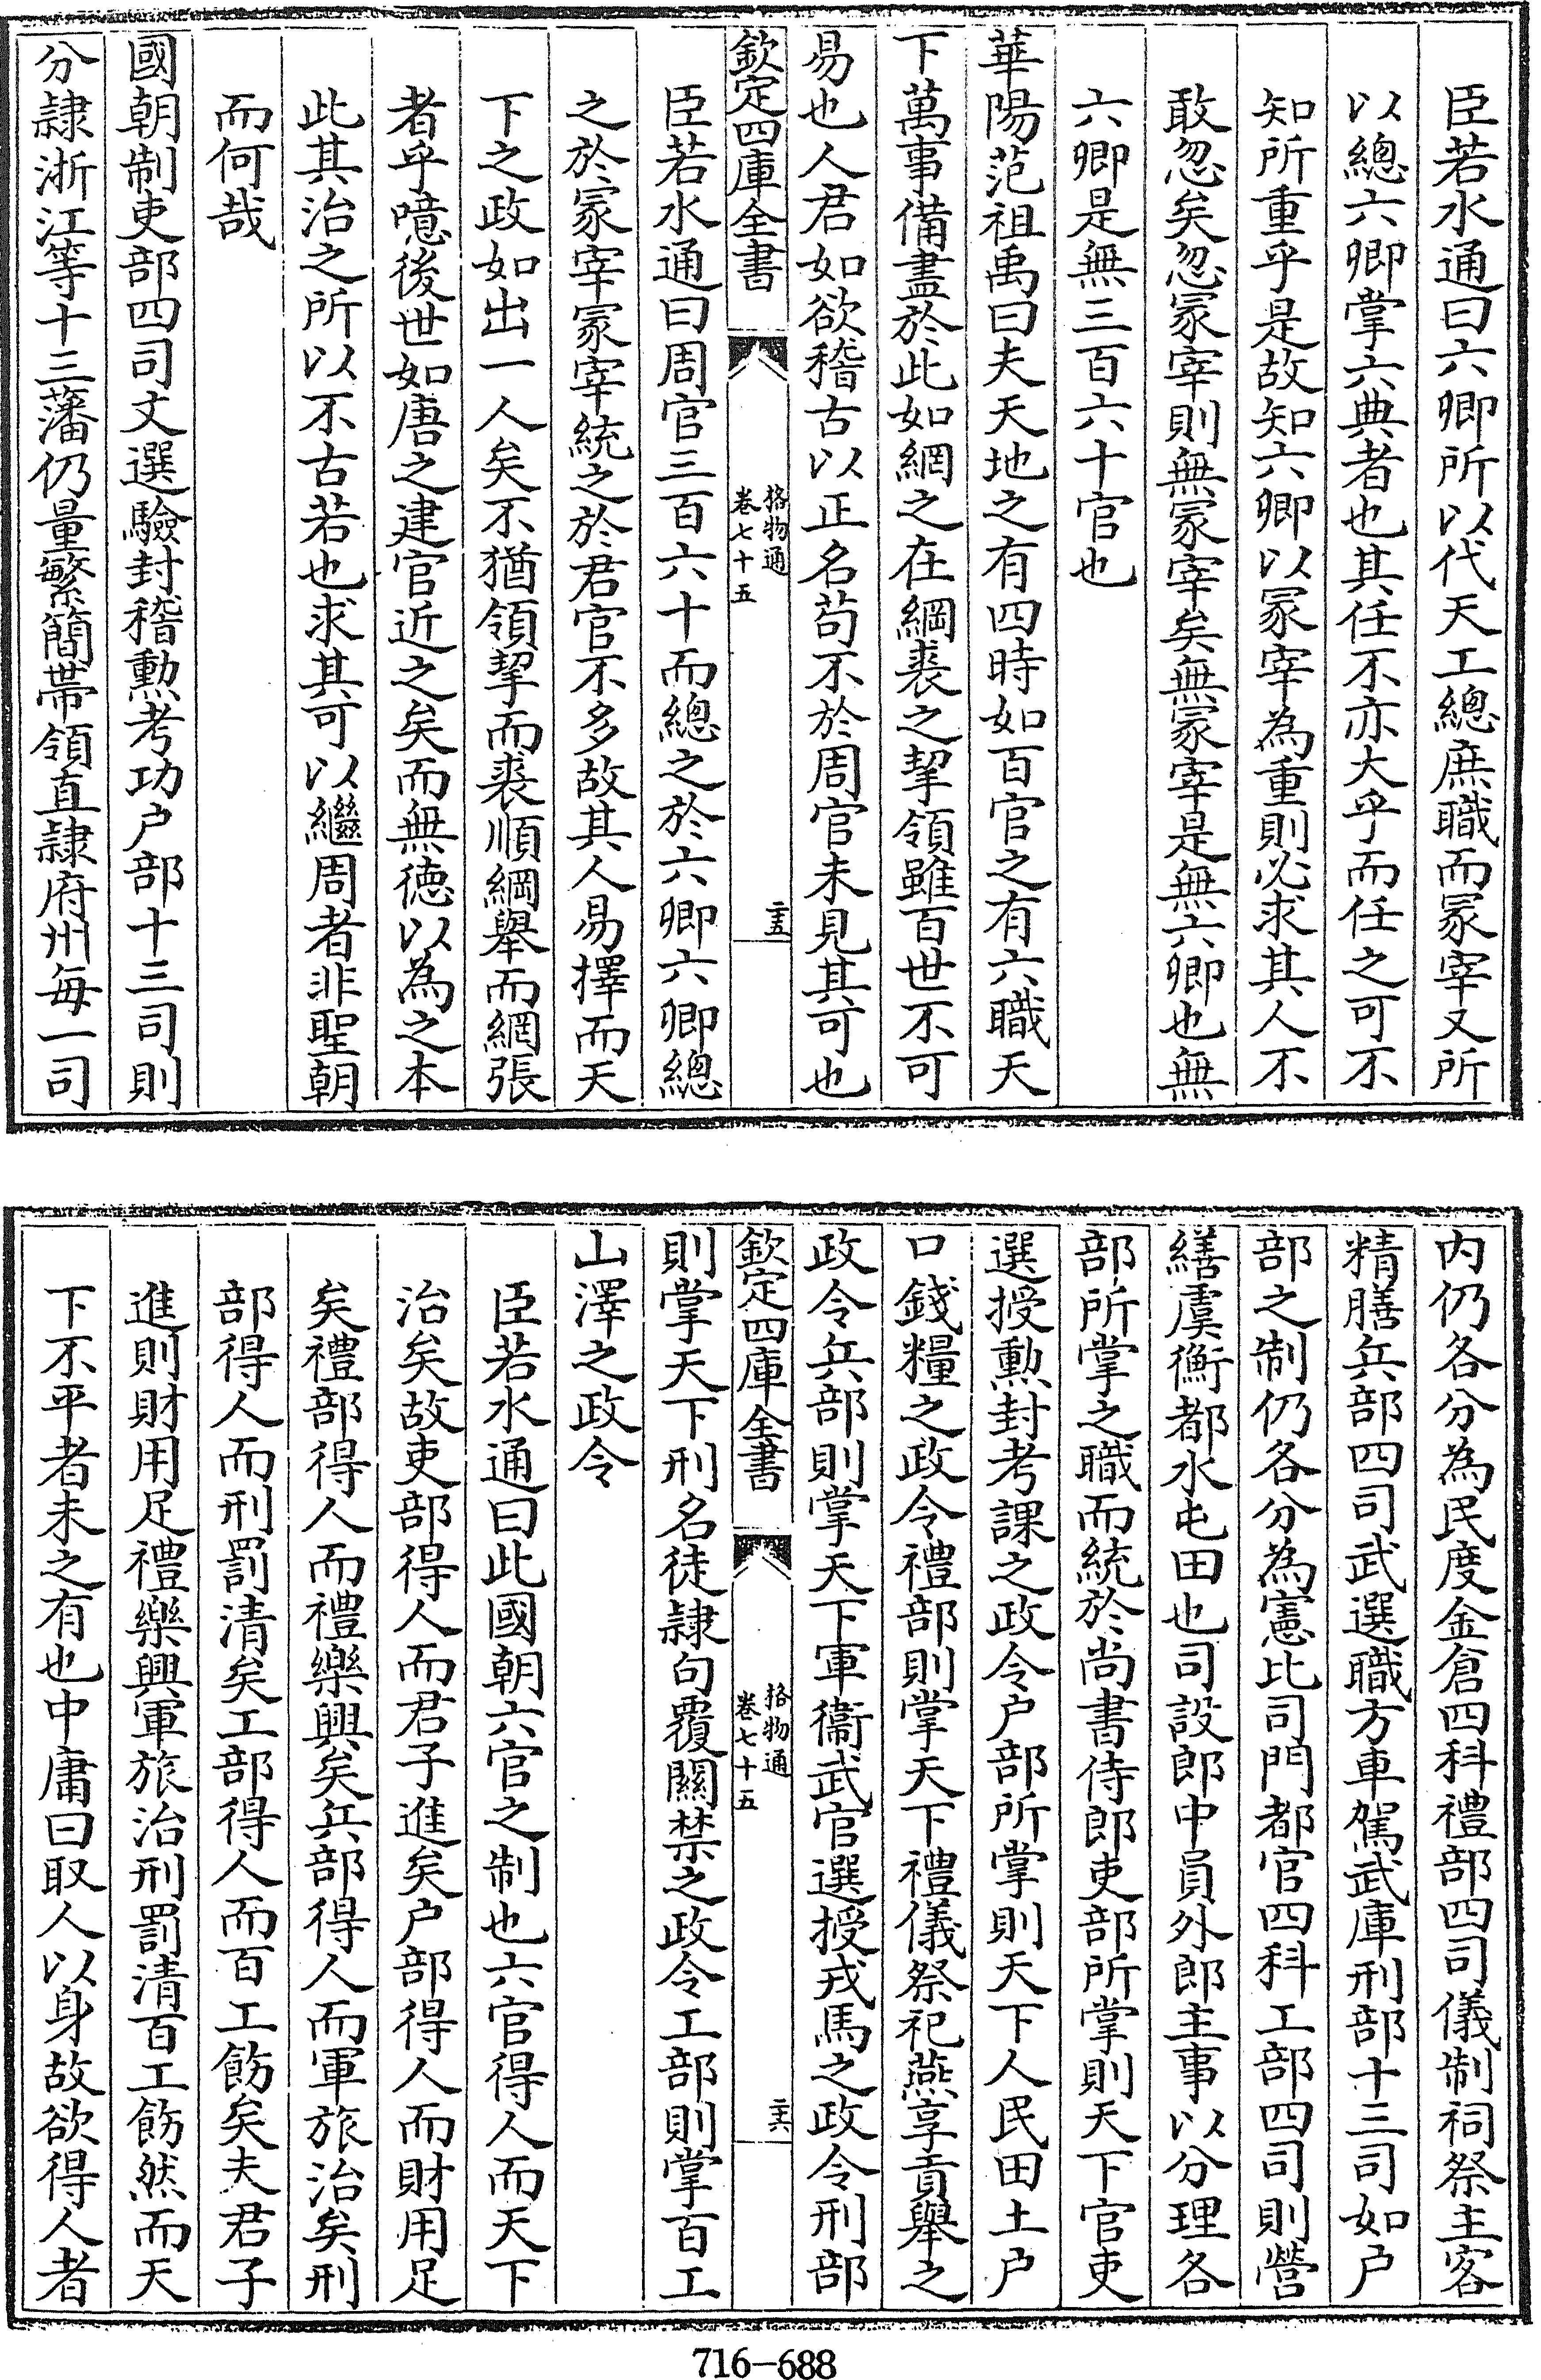 臣若水通曰六卿所以代天工總庶職而冢宰又所
以總六卿掌六典者也其任不亦大乎而任之可不
知所重乎是故知六卿以冢宰為重則必求其人不
敢忽矣忽冢宰則無冢宰矣無冢宰是無六卿也無
六卿是無三百六十官也
華陽范祖禹曰夫天地之有四時如百官之有六職天
下萬事備盡於此如網之在綱裘之挈領雖百世不可
易也人君如欲稽古以正名茍不於周官未見其可也
欽定四庫全書
格物通
卷七十五
二十五
臣若水通曰周官三百六十而總之於六卿六卿總
之於冢宰冢宰統之於君官不多故其人易擇而天
下之政如出一人矣不猶領挈而裘順綱舉而網張
者乎噫後世如唐之建官近之矣而無徳以為之本
此其治之所以不古若也求其可以繼周者非聖朝
而何哉
國朝制吏部四司文選驗封稽勲考功户部十三司則
分隷浙江等十三藩仍量繁簡帶領直隷府州每一司
内仍各分為民度金倉四科禮部四司儀制祠祭主客
精膳兵部四司武選職方車駕武庫刑部十三司如户
部之制仍各分為憲比司門都官四科工部四司則營
繕虞衡都水屯田也司設郎中員外郎主事以分理各
部所掌之職而統於尚書侍郎吏部所掌則天下官吏
選授勲封考課之政令户部所掌則天下人民田土户
口錢糧之政令禮部則掌天下禮儀祭祀燕享貢舉之
政令兵部則掌天下軍衞武官選授戎馬之政令刑部
欽定四庫全書
格物通
卷七十五
二十六
則掌天下刑名徒隷句覆關禁之政令工部則掌百工
山澤之政令
臣若水通曰此國朝六官之制也六官得人而天下
治矣故吏部得人而君子進矣户部得人而財用足
矣禮部得人而禮樂興矣兵部得人而軍旅治矣刑
部得人而刑罰清矣工部得人而百工飭矣夫君子
進則財用足禮樂興軍旅治刑罰清百工飭然而天
下不平者未之有也中庸曰取人以身故欲得人者
716-688